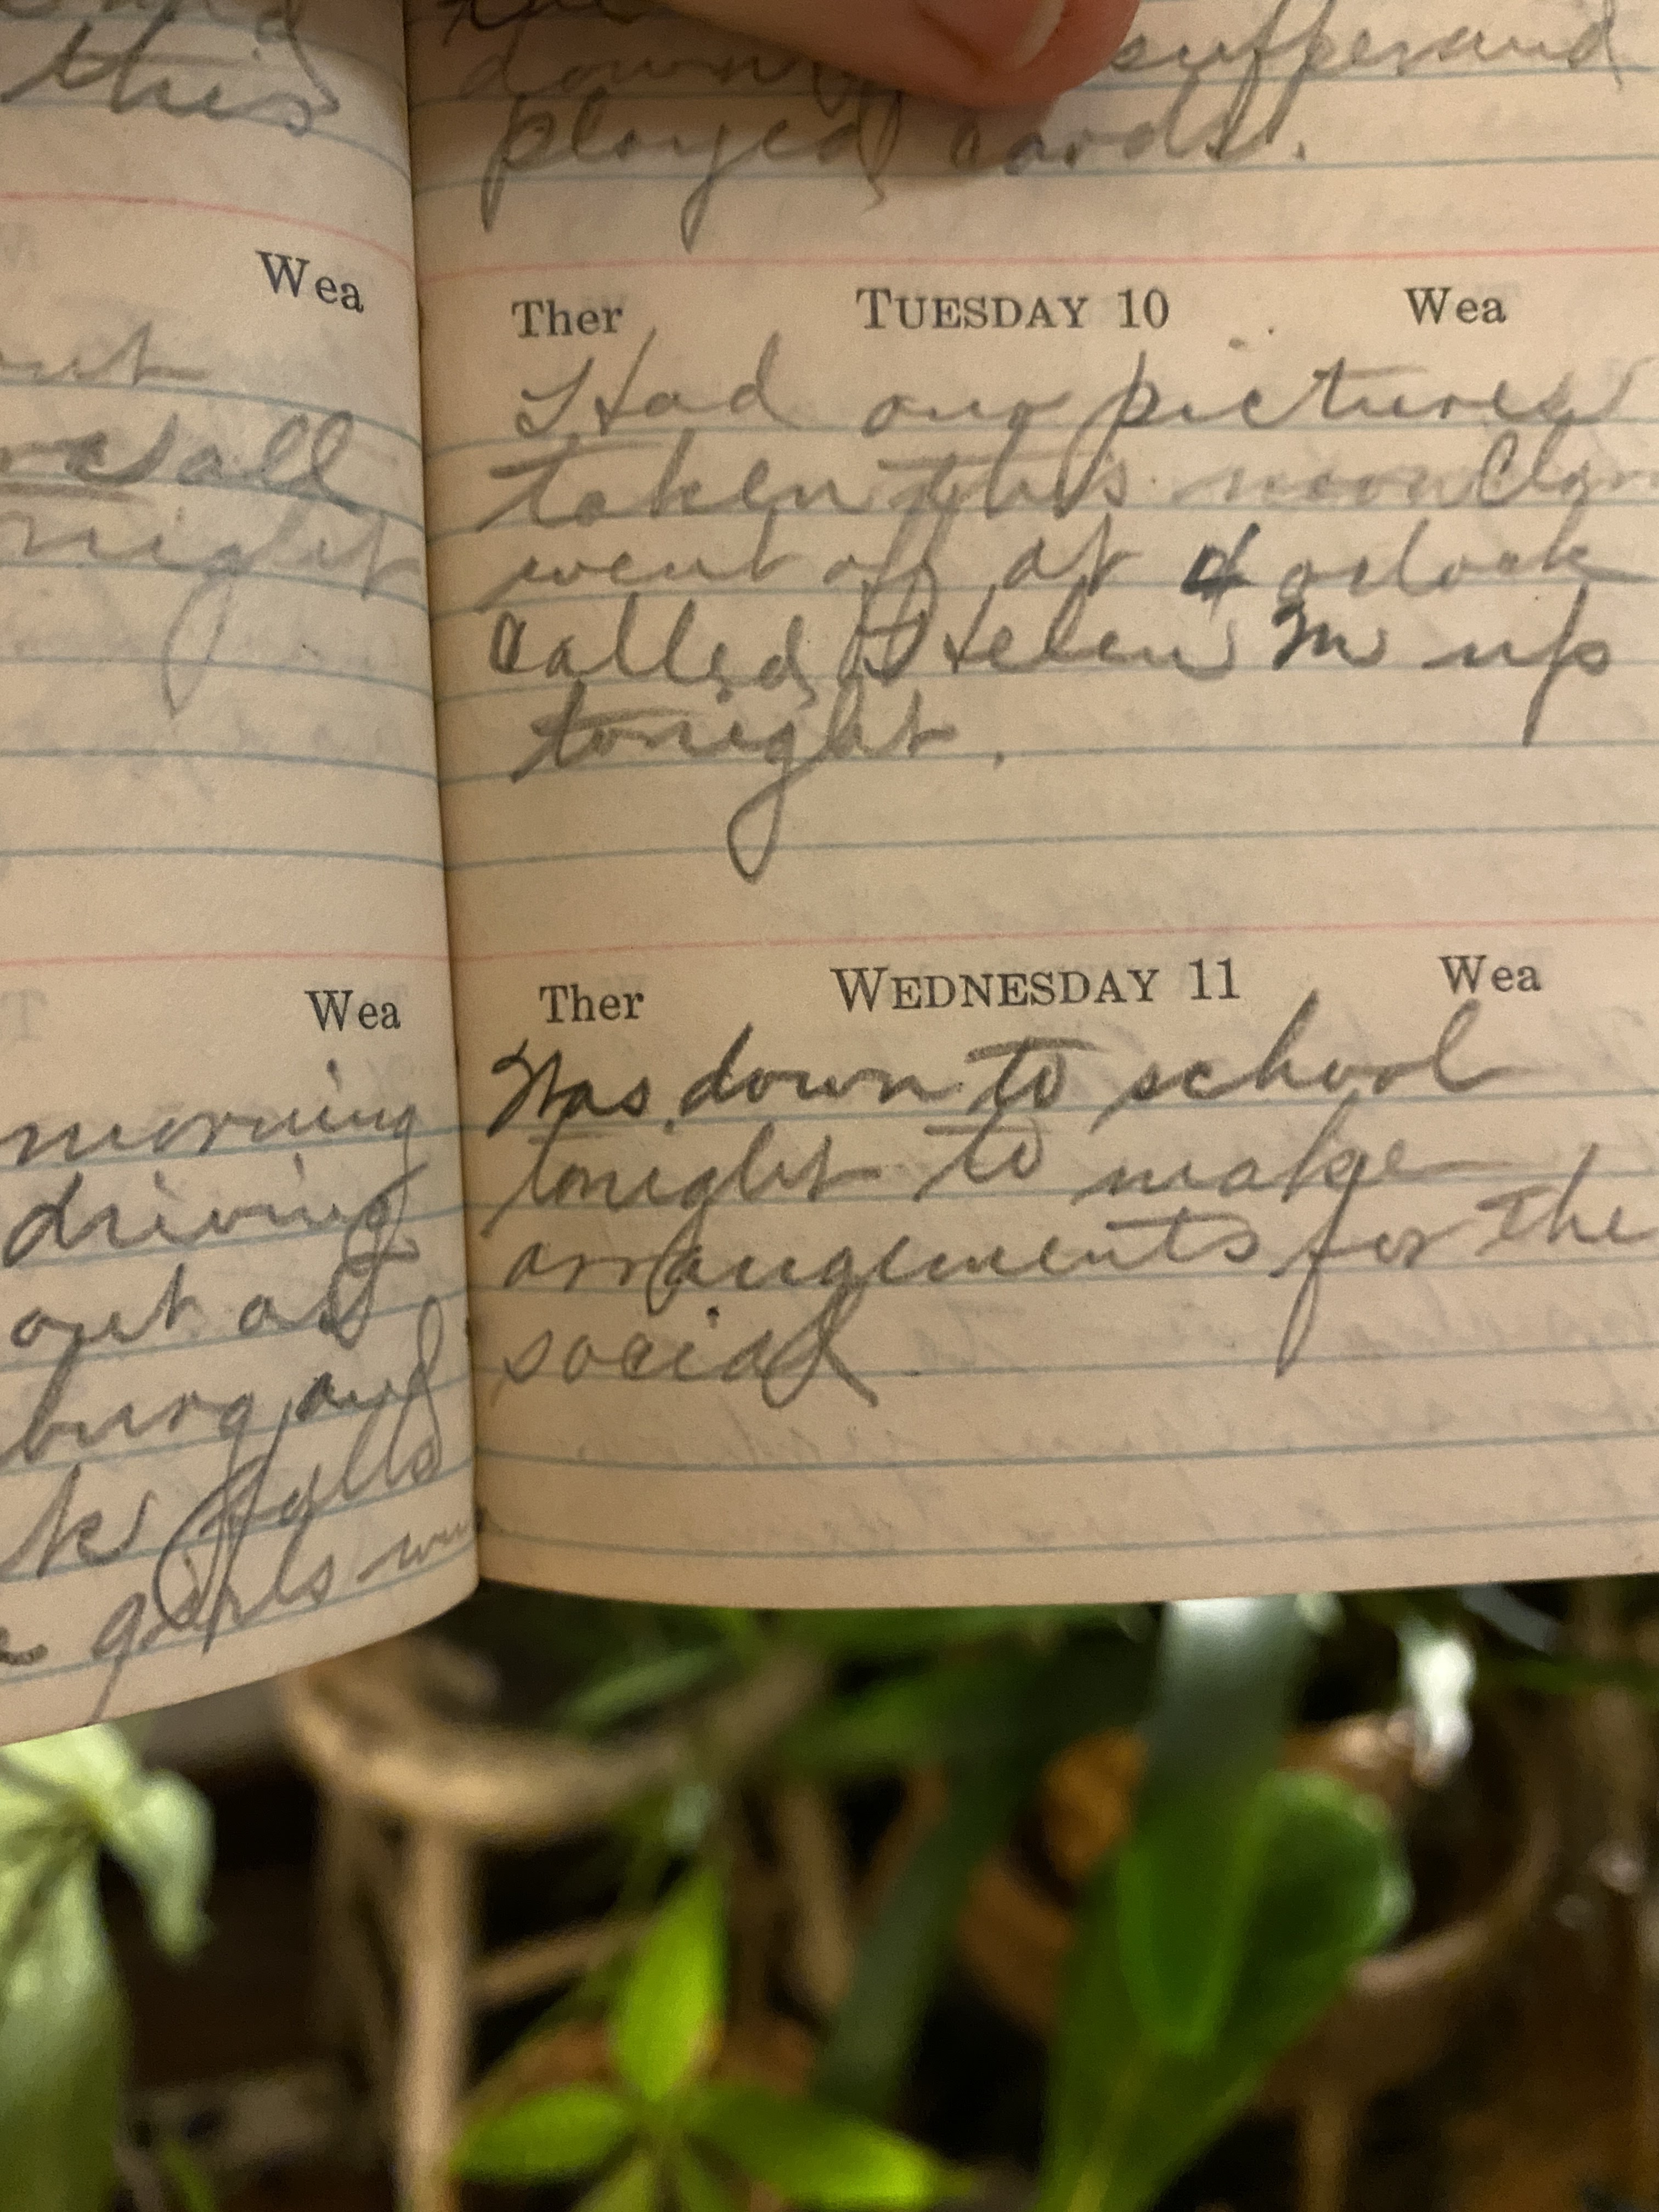 this
Wea
all
night
Wea
morning
driving
out at
burg and
k falls
girls
down supper and
played cards.
Ther TUESDAY 10 Wea
Had our pictures
taken this noon
went off at 4 oclock
Called Helen M up
tonight.
Ther WEDNESDAY 11 Wea
Was down to school
tonight to make
arrangements for the
social